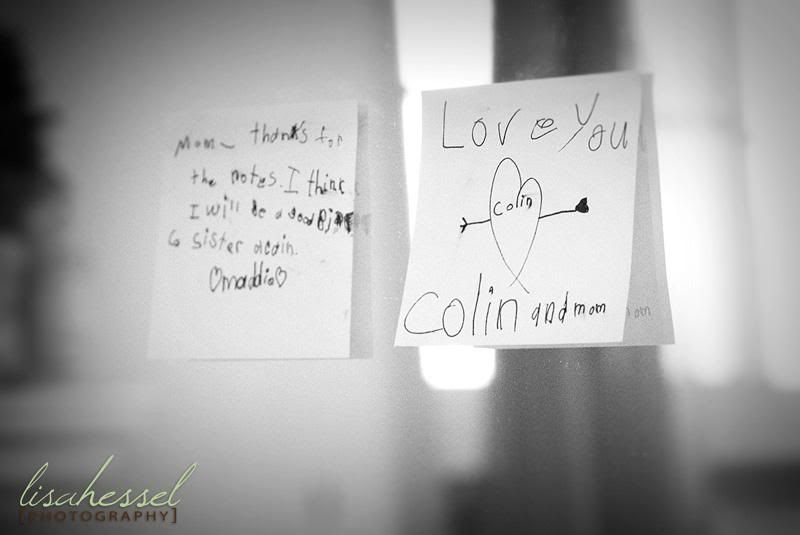 Mom~ thanks for
the notes. I think
I will be a good
sister again.
♡maddie♡
Love You
Colin
Colin and mom
om
lisahessel
[PHOTOGRAPHY]